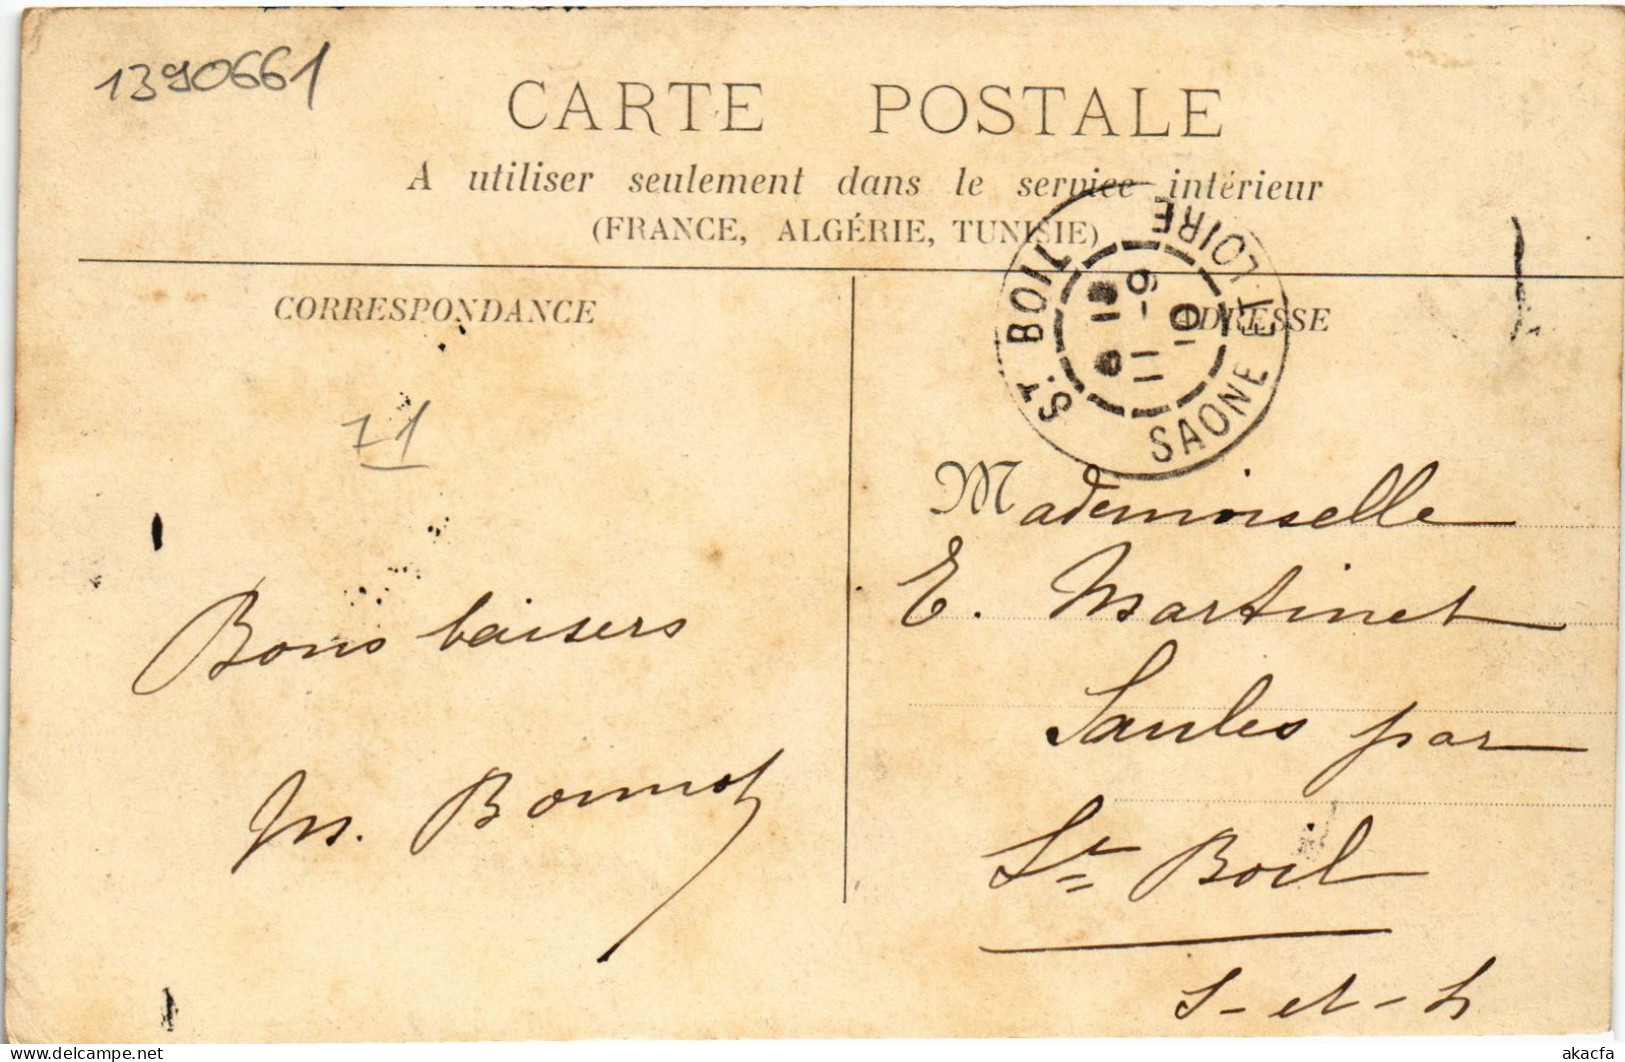 1390661
CARTE POSTALE
A utiliser seulement dans le service intérieur
(FRANCE, ALGÉRIE, TUNISIE)
CORRESPONDANCE
ADRESSE
ST. BOIL
SAONE ET LOIRE
71
Bons baisers
M. Bonnot
Mademoiselle
E. Martinet
Saules par
St Boil
S-et-L
akacfa